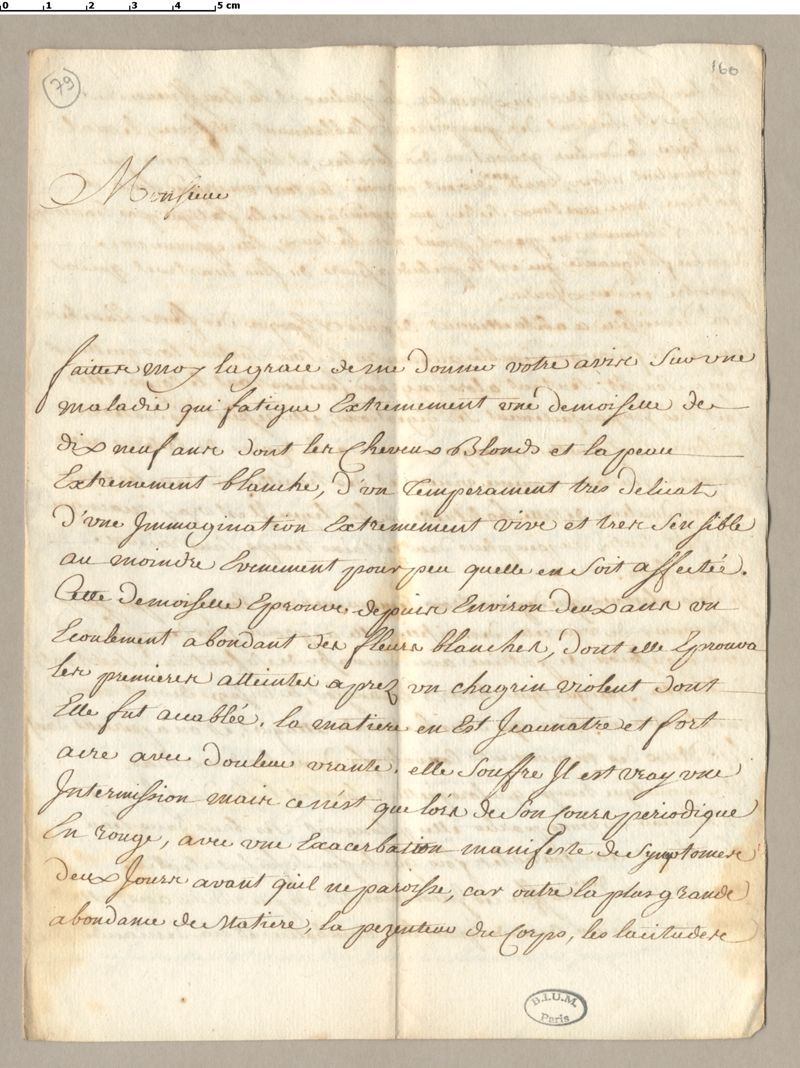 0 1 2 3 4 5 cm
79
160
Monsieur
faittes moy la grace de me donner votre avis sur une
maladie qui fatigue Extremement une demoiselle de
dix neuf ans dont les Cheveux Blonds et la peau
Extremement blanche, d'un Temperament tres delicat
d'une Jmmagination Extremement vive et tres sensible
au moindre Evenement pour peu quelle en soit affectée.
Cette demoiselle Eprouve depuis Environ deux ans un
Ecoulement abondant des fleurs blanches, dont elle Eprouva
les premieres atteintes aprez un chagrin violent dont
Elle fut acablée. la matiere en Est Jeaunatre et fort
acre avec douleur urante. elle souffre Jl est vray une
Intermission mais ce n'est que lors de son Cours periodique
En rouge, avec une Exacerbation manifeste de symptomes
deux Jours avant quil ne paroisse, car outre la plus grande
abondance de Matiere, la pezenteur du Corps, les lacitudes
B.I.U.M.
Paris